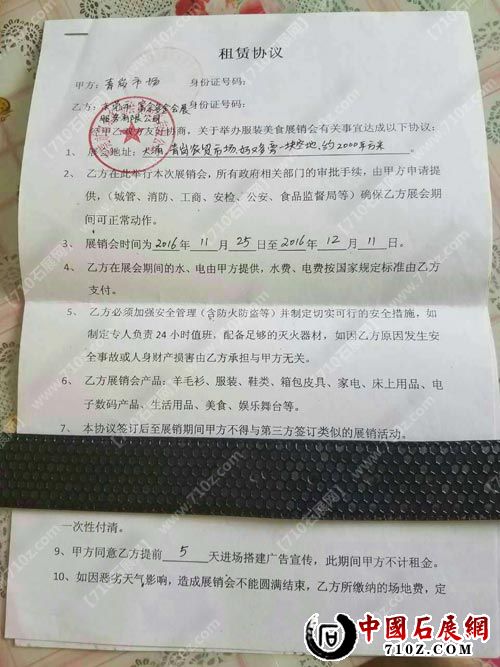 租赁协议
甲方：青岗市场 身份证号码：
乙方： 身份证号码：
服务有限公司
经甲乙双方友好协商，关于举办服装美食展销会有关事宜达成以下协议：
1、展会地址：大浦，青岗农贸市场，好又多旁一块空地，约2000平方米。
2、乙方在此举行本次展销会，所有政府相关部门的审批手续，由甲方申请提
供，（城管、消防、工商、安检、公安、食品监督局等）确保乙方展会期
间可正常动作。
3、展销会时间为2016年11月25日至2016年12月11日。
4、乙方在展会期间的水、电由甲方提供，水费、电费按国家规定标准由乙方
支付。
5、乙方必须加强安全管理（含防火防盗等）并制定切实可行的安全措施，如
制定专人负责24小时值班，配备足够的灭火器材，如因乙方原因发生安
全事故或人身财产损害由乙方承担与甲方无关。
6、乙方展销会产品：羊毛衫、服装、鞋类、箱包皮具、家电、床上用品、电
子数码产品、生活用品、美食、娱乐舞台等。
7、本协议签订后至展销期间甲方不得与第三方签订类似的展销活动。
一次性付清。
9、甲方同意乙方提前5天进场搭建广告宣传，此期间甲方不计租金。
10、如因恶劣天气影响，造成展销会不能圆满结束，乙方所缴纳的场地费，定
中國石展網
710Z.COM